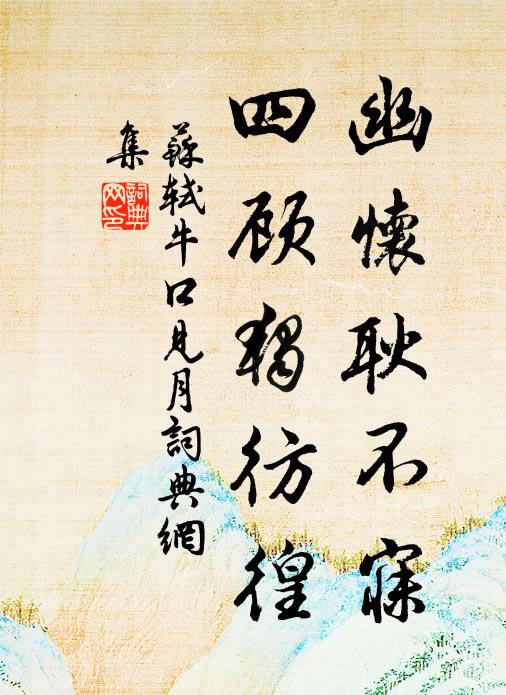 幽懷耿不寐
四顾獨彷徨
蘇轼牛口見月詞典網
集
詞典网印